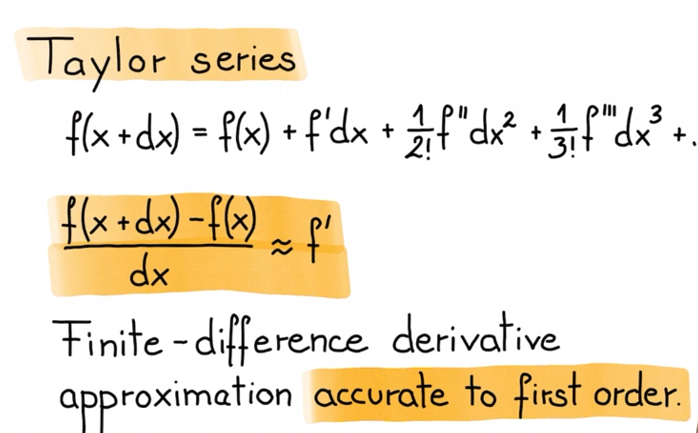 Taylor series
f(x+dx) = f(x) + f'dx + 1/2! f"dx² + 1/3! f'''dx³ + .
f(x+dx) - f(x) / dx ≈ f'
Finite-difference derivative
approximation accurate to first order.